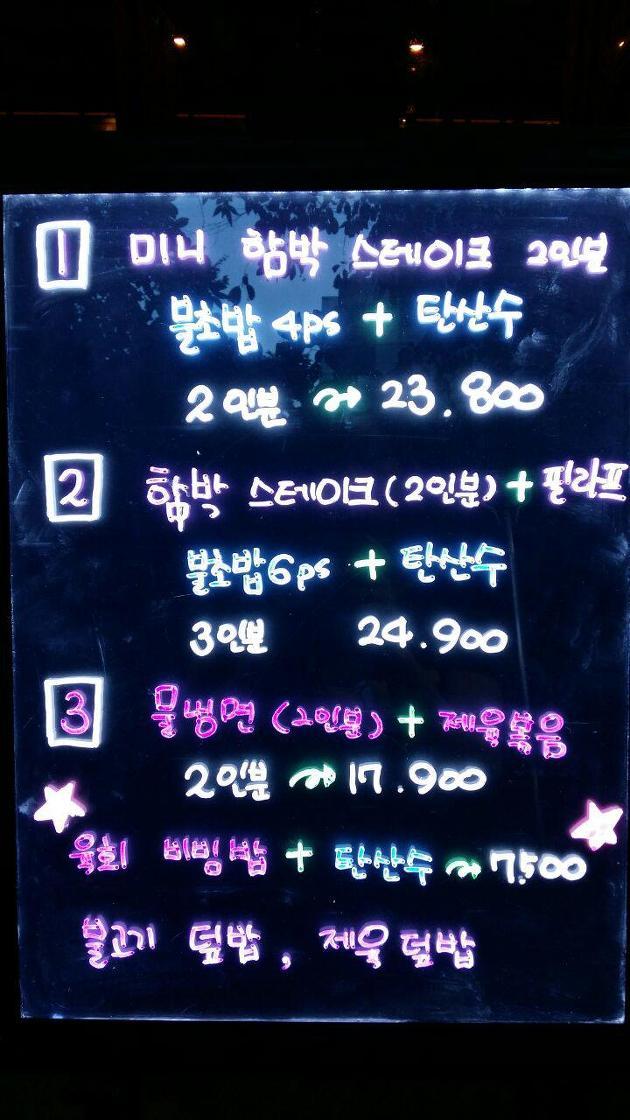 1 미니 함박 스테이크 2인분
불초밥 4ps + 탄산수
2인분 ~> 23.800
2 함박 스테이크(2인분) + 필라프
불초밥 6ps + 탄산수
3인분 24.900
3 물냉면 (2인분) + 제육볶음
2인분 ~> 17.900
육회 비빔밥 + 탄산수 ~> 7,500
불고기 덮밥, 제육덮밥